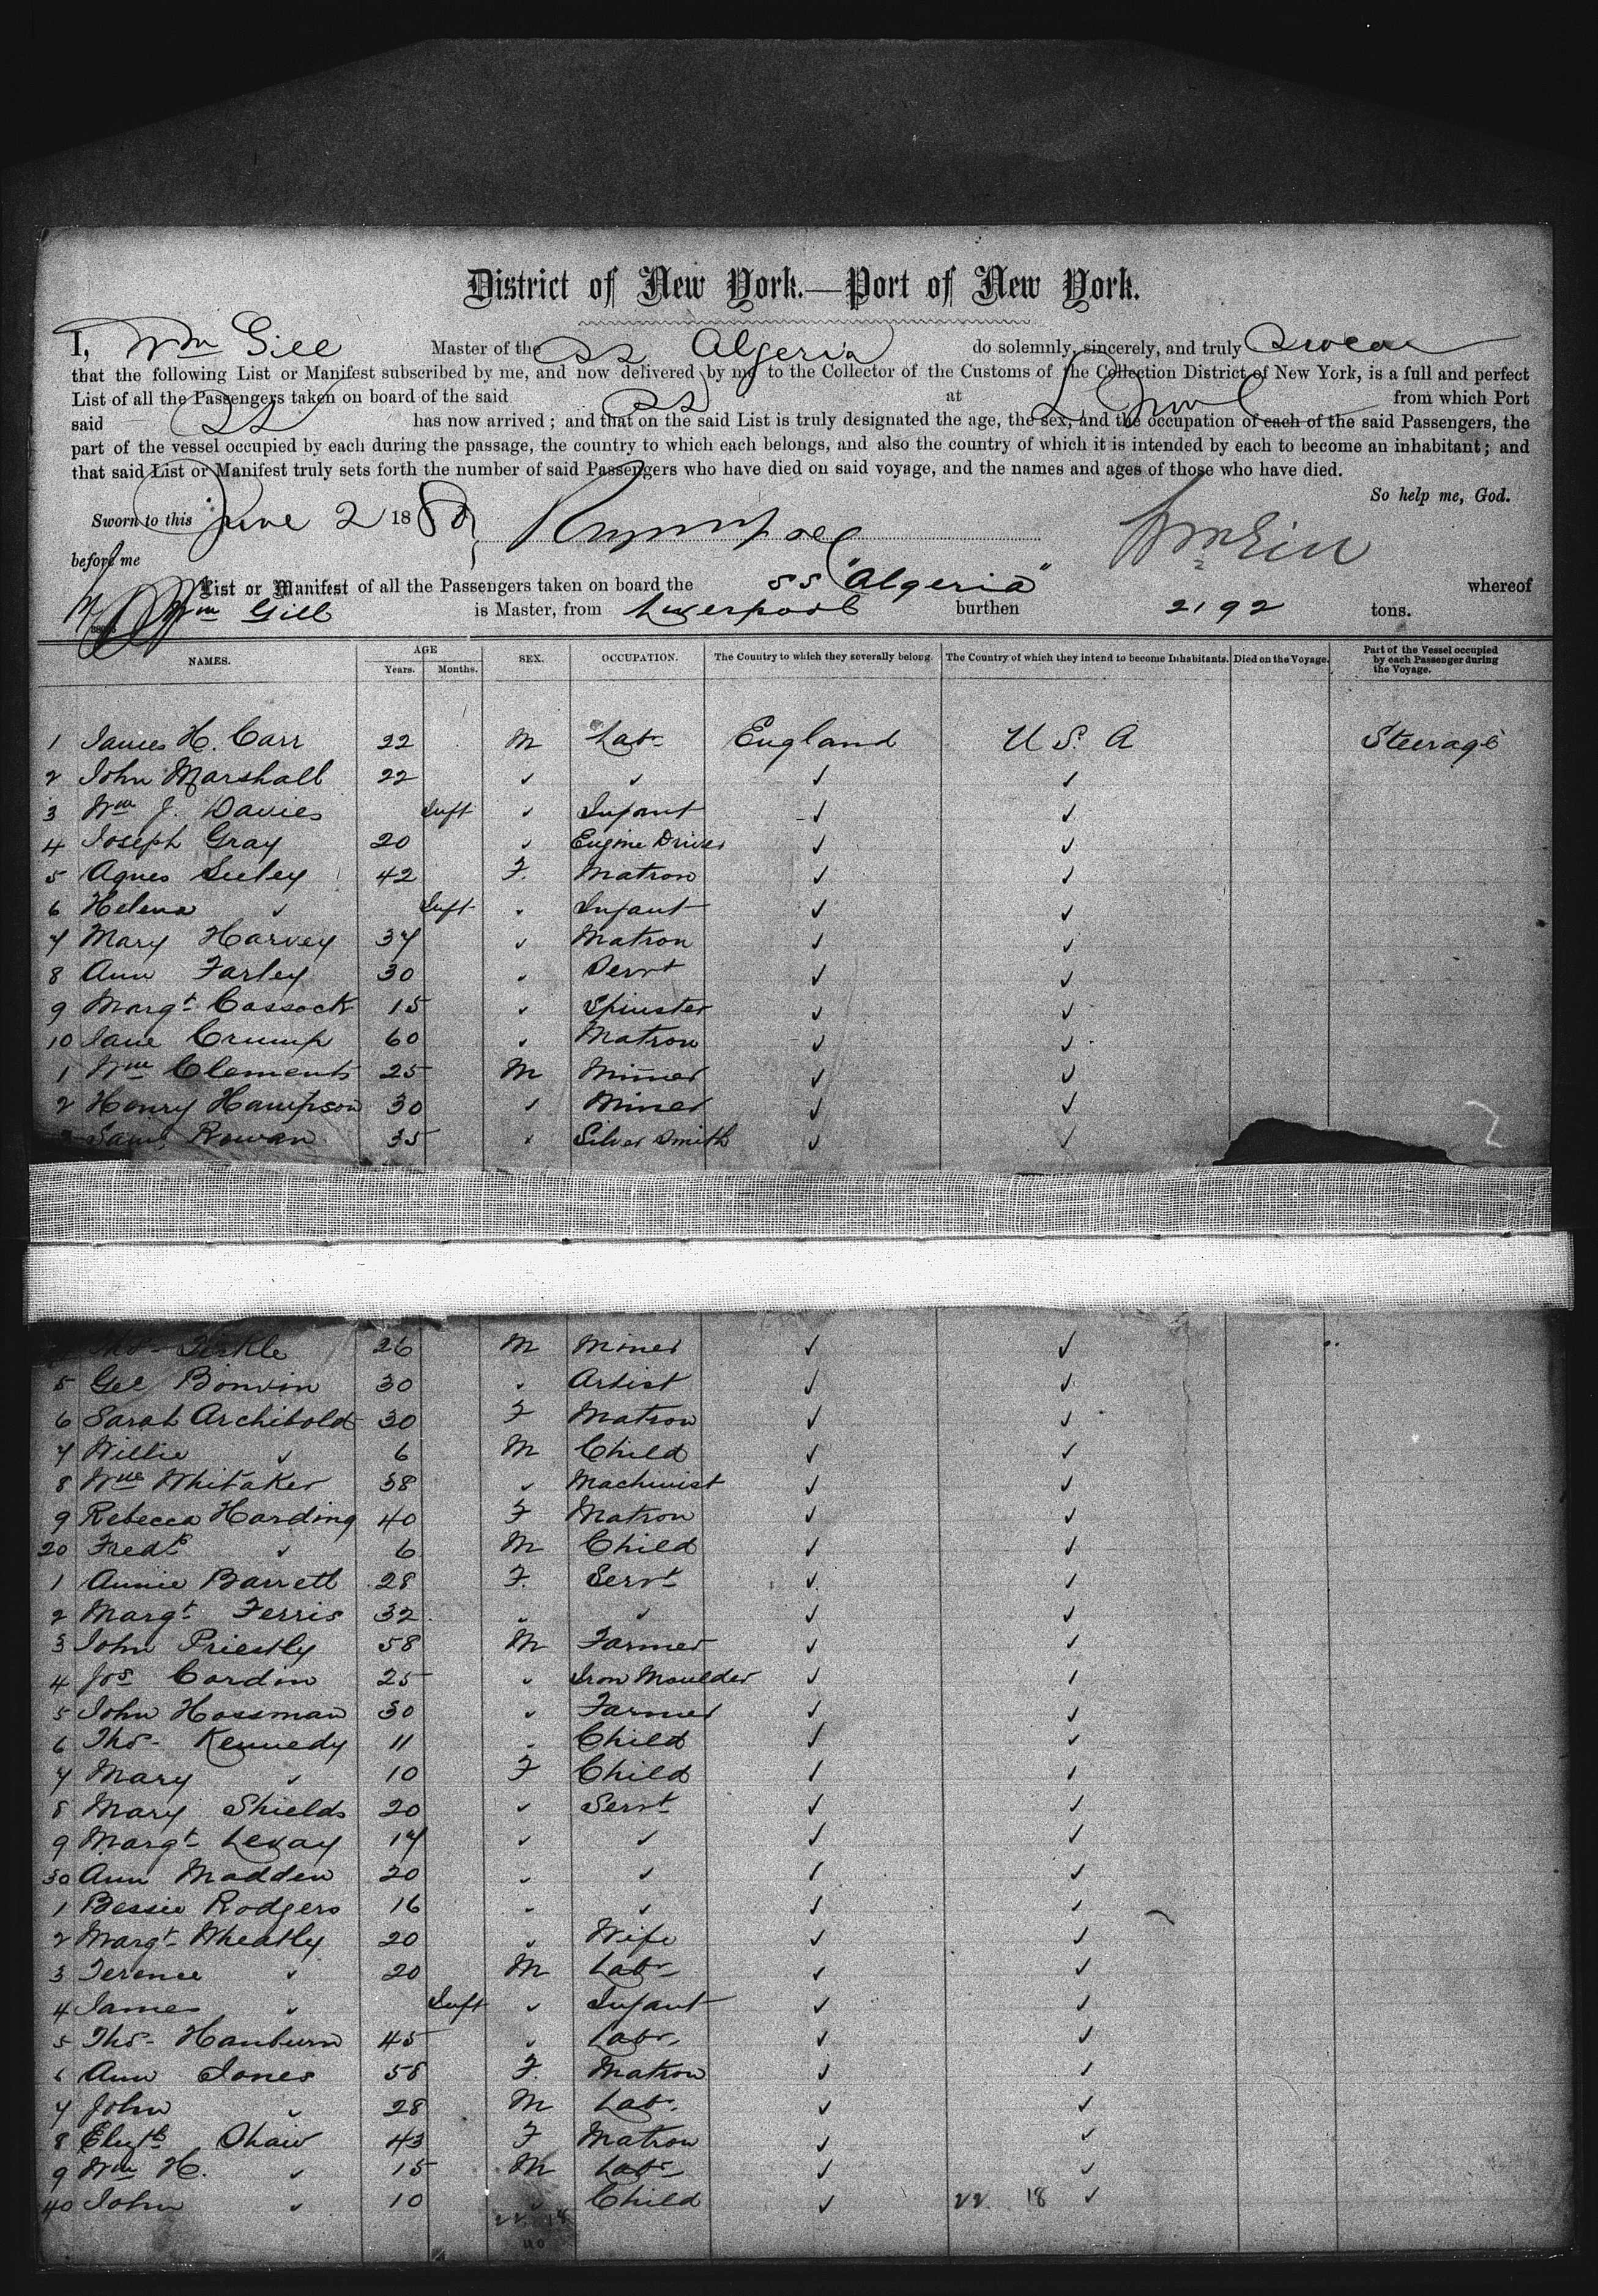 District of New York.—Port of New York.
I, Wm Gill Master of the SS Algeria do solemnly, sincerely, and truly Swear
that the following List or Manifest subscribed by me, and now delivered by me to the Collector of the Customs of the Collection District of New York, is a full and perfect
List of all the Passengers taken on board of the said SS at L'pool from which Port
said SS has now arrived; and that on the said List is truly designated the age, the sex, and the occupation of each of the said Passengers, the
part of the vessel occupied by each during the passage, the country to which each belongs, and also the country of which it is intended by each to become an inhabitant; and
that said List or Manifest truly sets forth the number of said Passengers who have died on said voyage, and the names and ages of those who have died.
So help me, God.
Sworn to this June 2 1880 Wm Gill
before me
List or Manifest of all the Passengers taken on board the SS "Algeria" whereof
Wm Gill is Master, from Liverpool burthen 2192 tons.
NAMES. AGE Years. Months. SEX. OCCUPATION. The Country to which they severally belong. The Country of which they intend to become Inhabitants. Died on the Voyage. Part of the Vessel occupied by each Passenger during the Voyage.
1 James H. Carr 22 M Labr England U S. A Steerage
2 John Marshall 22 ✓ ✓ ✓ ✓
3 Wm J. Davies Inft ✓ Infant ✓ ✓
4 Joseph Gray 20 ✓ Engine Driver ✓ ✓
5 Agnes Seeley 42 F. Matron ✓ ✓
6 Helena ✓ Inft ✓ Infant ✓ ✓
7 Mary Harvey 37 ✓ Matron ✓ ✓
8 Ann Farley 30 ✓ Servt ✓ ✓
9 Margt Cassock 15 ✓ Spinster ✓ ✓
10 Jane Crump 60 ✓ Matron ✓ ✓
1 Wm Clements 25 M Miner ✓ ✓
2 Henry Hampson 30 ✓ Miner ✓ ✓
3 Saml Rowan 35 ✓ Silver Smith ✓ ✓
2
Thos 26 M Miner ✓ ✓
5 Geo Bonvin 30 ✓ Artist ✓ ✓
6 Sarah Archibold 30 F Matron ✓ ✓
7 Willie ✓ 6 M Child ✓ ✓
8 Wm Whitaker 38 ✓ Machinist ✓ ✓
9 Rebecca Harding 40 F Matron ✓ ✓
20 Fredk ✓ 6 M Child ✓ ✓
1 Annie Barrett 28 F. Servt ✓ ✓
2 Margt Ferris 32 ✓ ✓ ✓ ✓
3 John Priestly 58 M Farmer ✓ ✓
4 Jos Cardin 25 ✓ Iron Moulder ✓ ✓
5 John Hossman 30 ✓ Farmer ✓ ✓
6 Thos Kennedy 11 ✓ Child ✓ ✓
7 Mary ✓ 10 F Child ✓ ✓
8 Mary Shields 20 ✓ Servt ✓ ✓
9 Margt Levay 17 ✓ ✓ ✓ ✓
30 Ann Madden 20 ✓ ✓ ✓ ✓
1 Bessie Rodgers 16 ✓ ✓ ✓ ✓
2 Margt Wheatly 20 ✓ Wife ✓ ✓
3 Terence ✓ 20 M Labr ✓ ✓
4 James ✓ Inft ✓ Infant ✓ ✓
5 Thos Hanburn 45 ✓ Labr ✓ ✓
6 Ann Jones 58 F. Matron ✓ ✓
7 John ✓ 28 M Labr. ✓ ✓
8 Elizth Shaw 43 F Matron ✓ ✓
9 Wm H. ✓ 15 M Labr ✓ ✓
40 John ✓ 10 ✓ Child ✓ 22 18 ✓
22 18
40